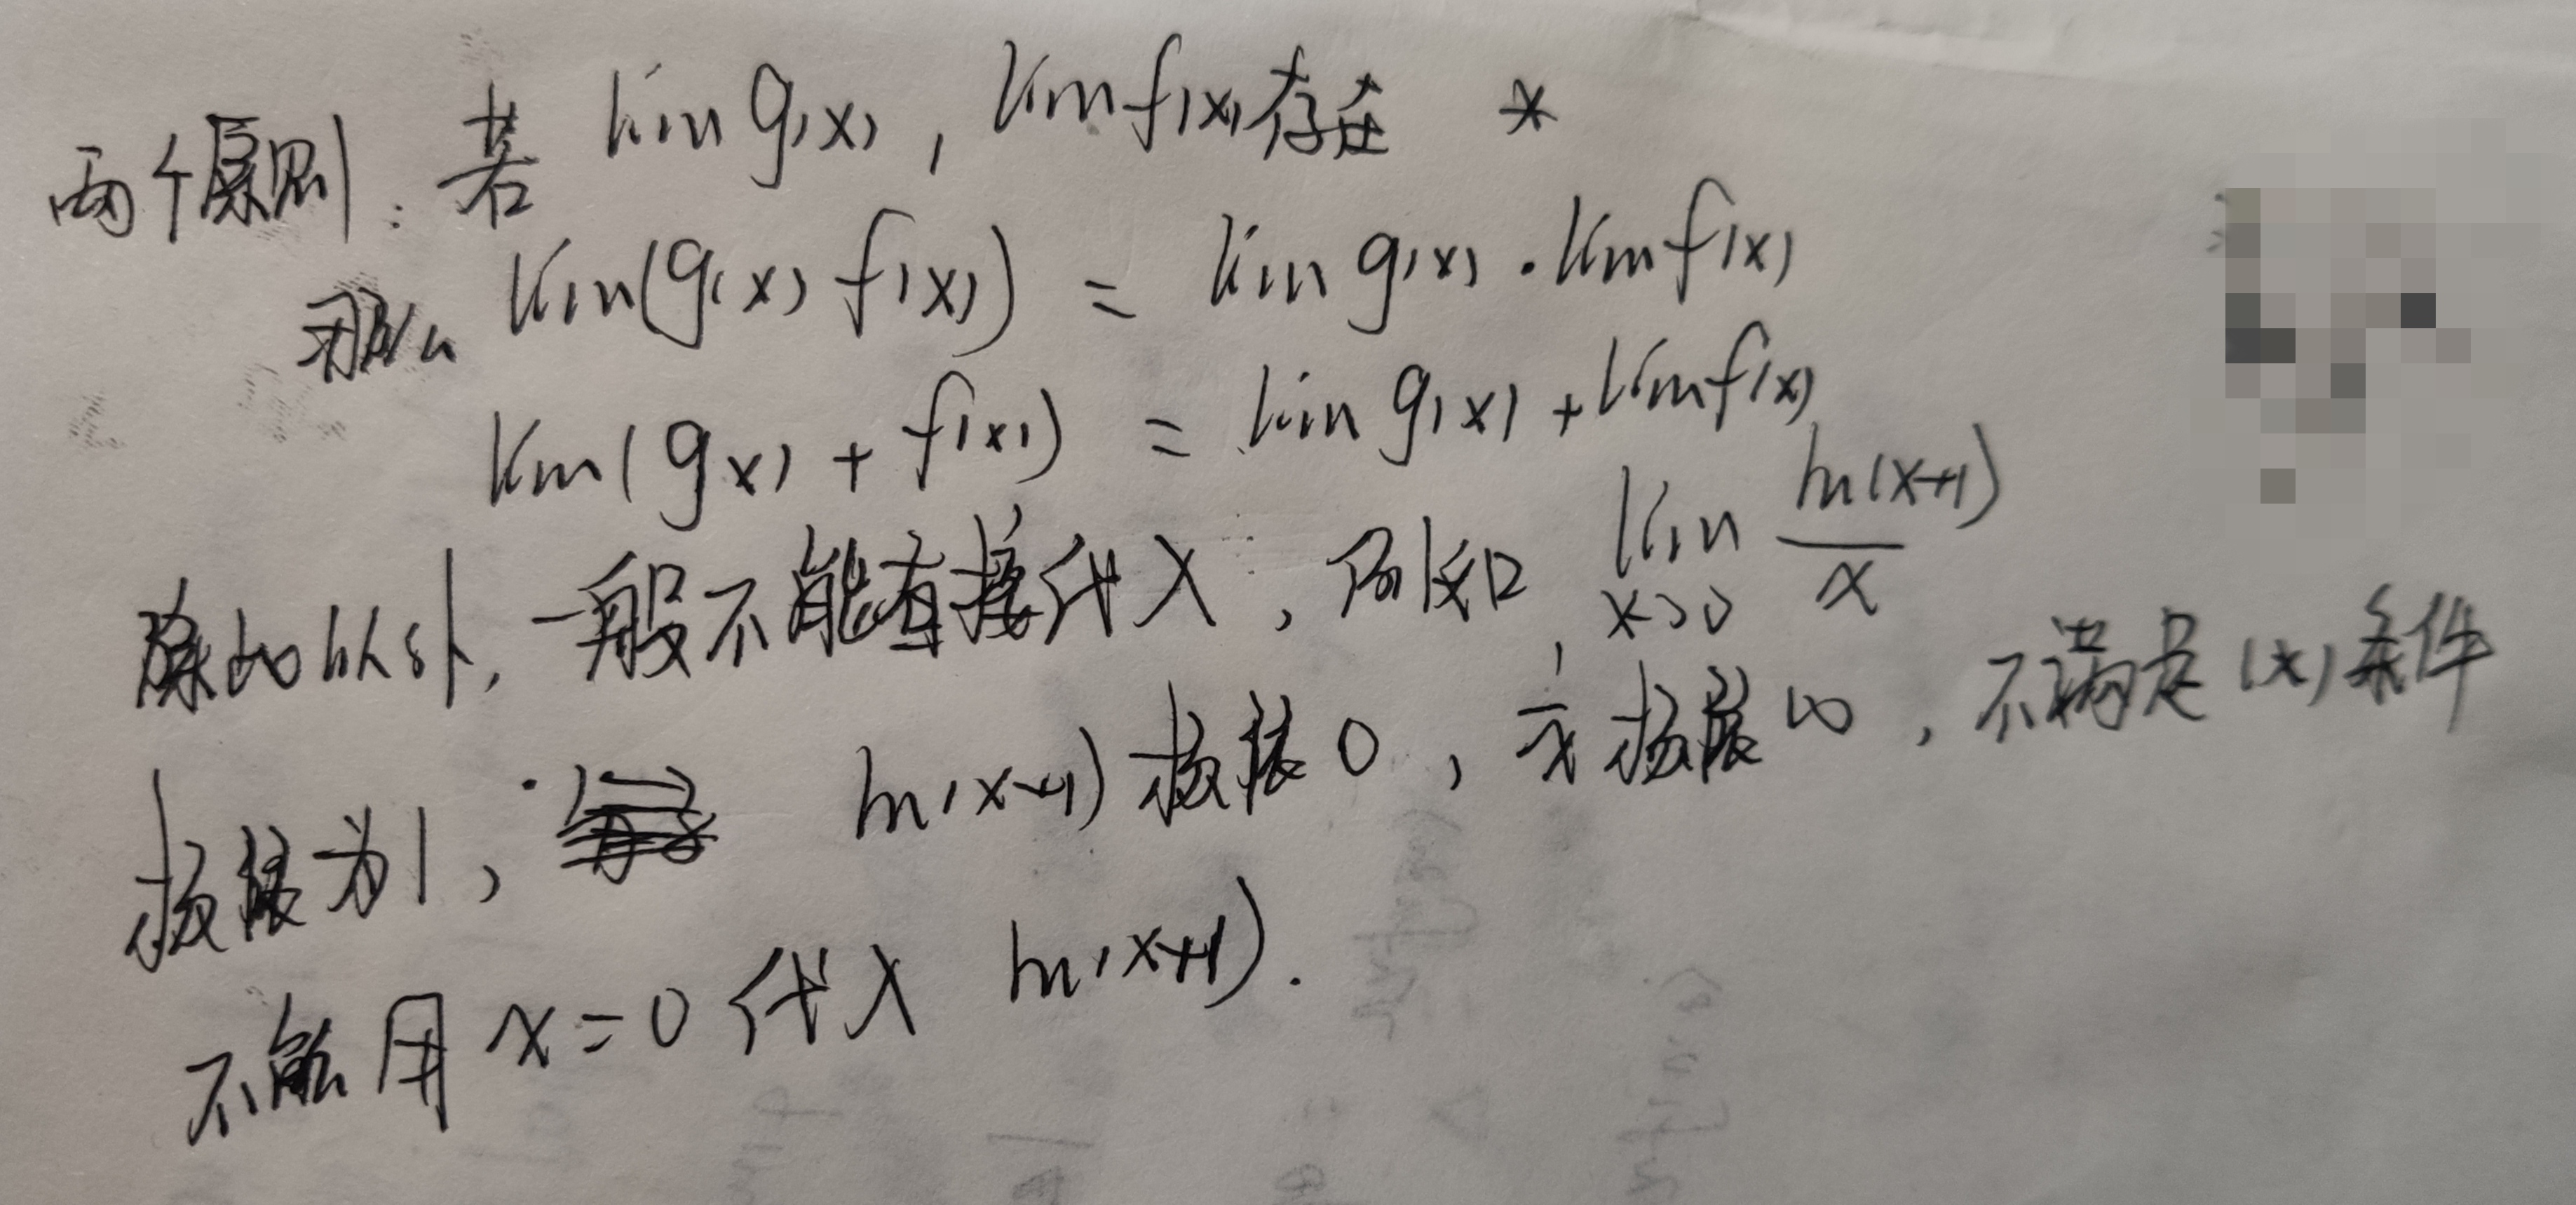 两个原则：若 lim g(x)，lim f(x)存在 *
那么 lim(g(x) f(x)) = lim g(x)·lim f(x)
lim(g(x) + f(x)) = lim g(x) + lim f(x)
除此以外，一般不能直接代入，例如，lim x→0 ln(x+1)/x
极限为1， ln(x+1)极限0，1/x极限∞，不满足(*)条件
不能用 x=0 代入 ln(x+1).